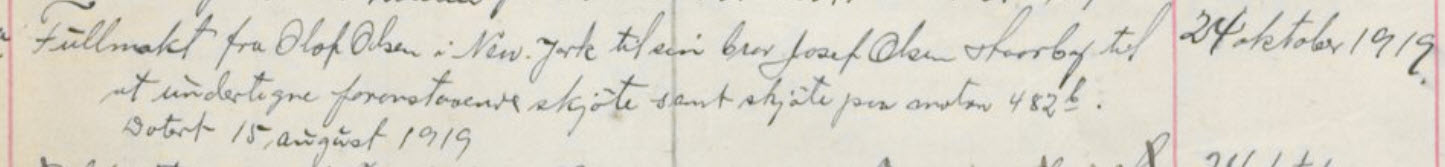 Fullmakt fra Olof Olsen i New. York til sin bror Josef Olsen Storrby til
at undertegne forenstaaende skjöte samt skjöte paa matrn 482b.
Datert 15, august 1919
24 oktober 1919.